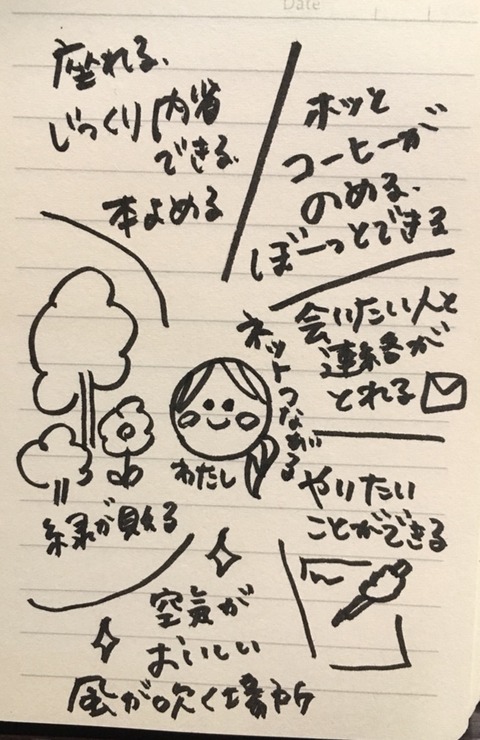 Date
座れる、
じっくり内省
できる
本よめる
ホッと
コーヒーが
のめる、
ぼーっとできる
会いたい人と
連絡が
とれる
ネットつながる
わたし
やりたい
ことができる
緑が見える
空気が
おいしい
風が吹く場所